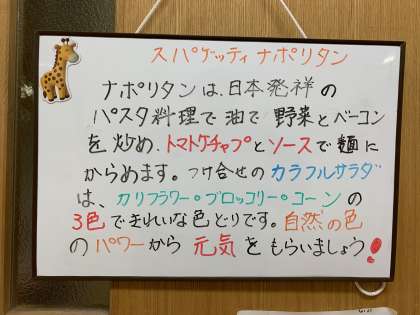 スパゲッティ ナポリタン
ナポリタンは、日本発祥の
パスタ料理で油で 野菜とベーコン
を炒め、トマトケチャプとソースで麺に
からめます。つけ合せのカラフルサラダ
は、カリフラワー・ブロッコリー・コーンの
3色できれいな色どりです。自然の色
のパワーから 元気をもらいましょう!